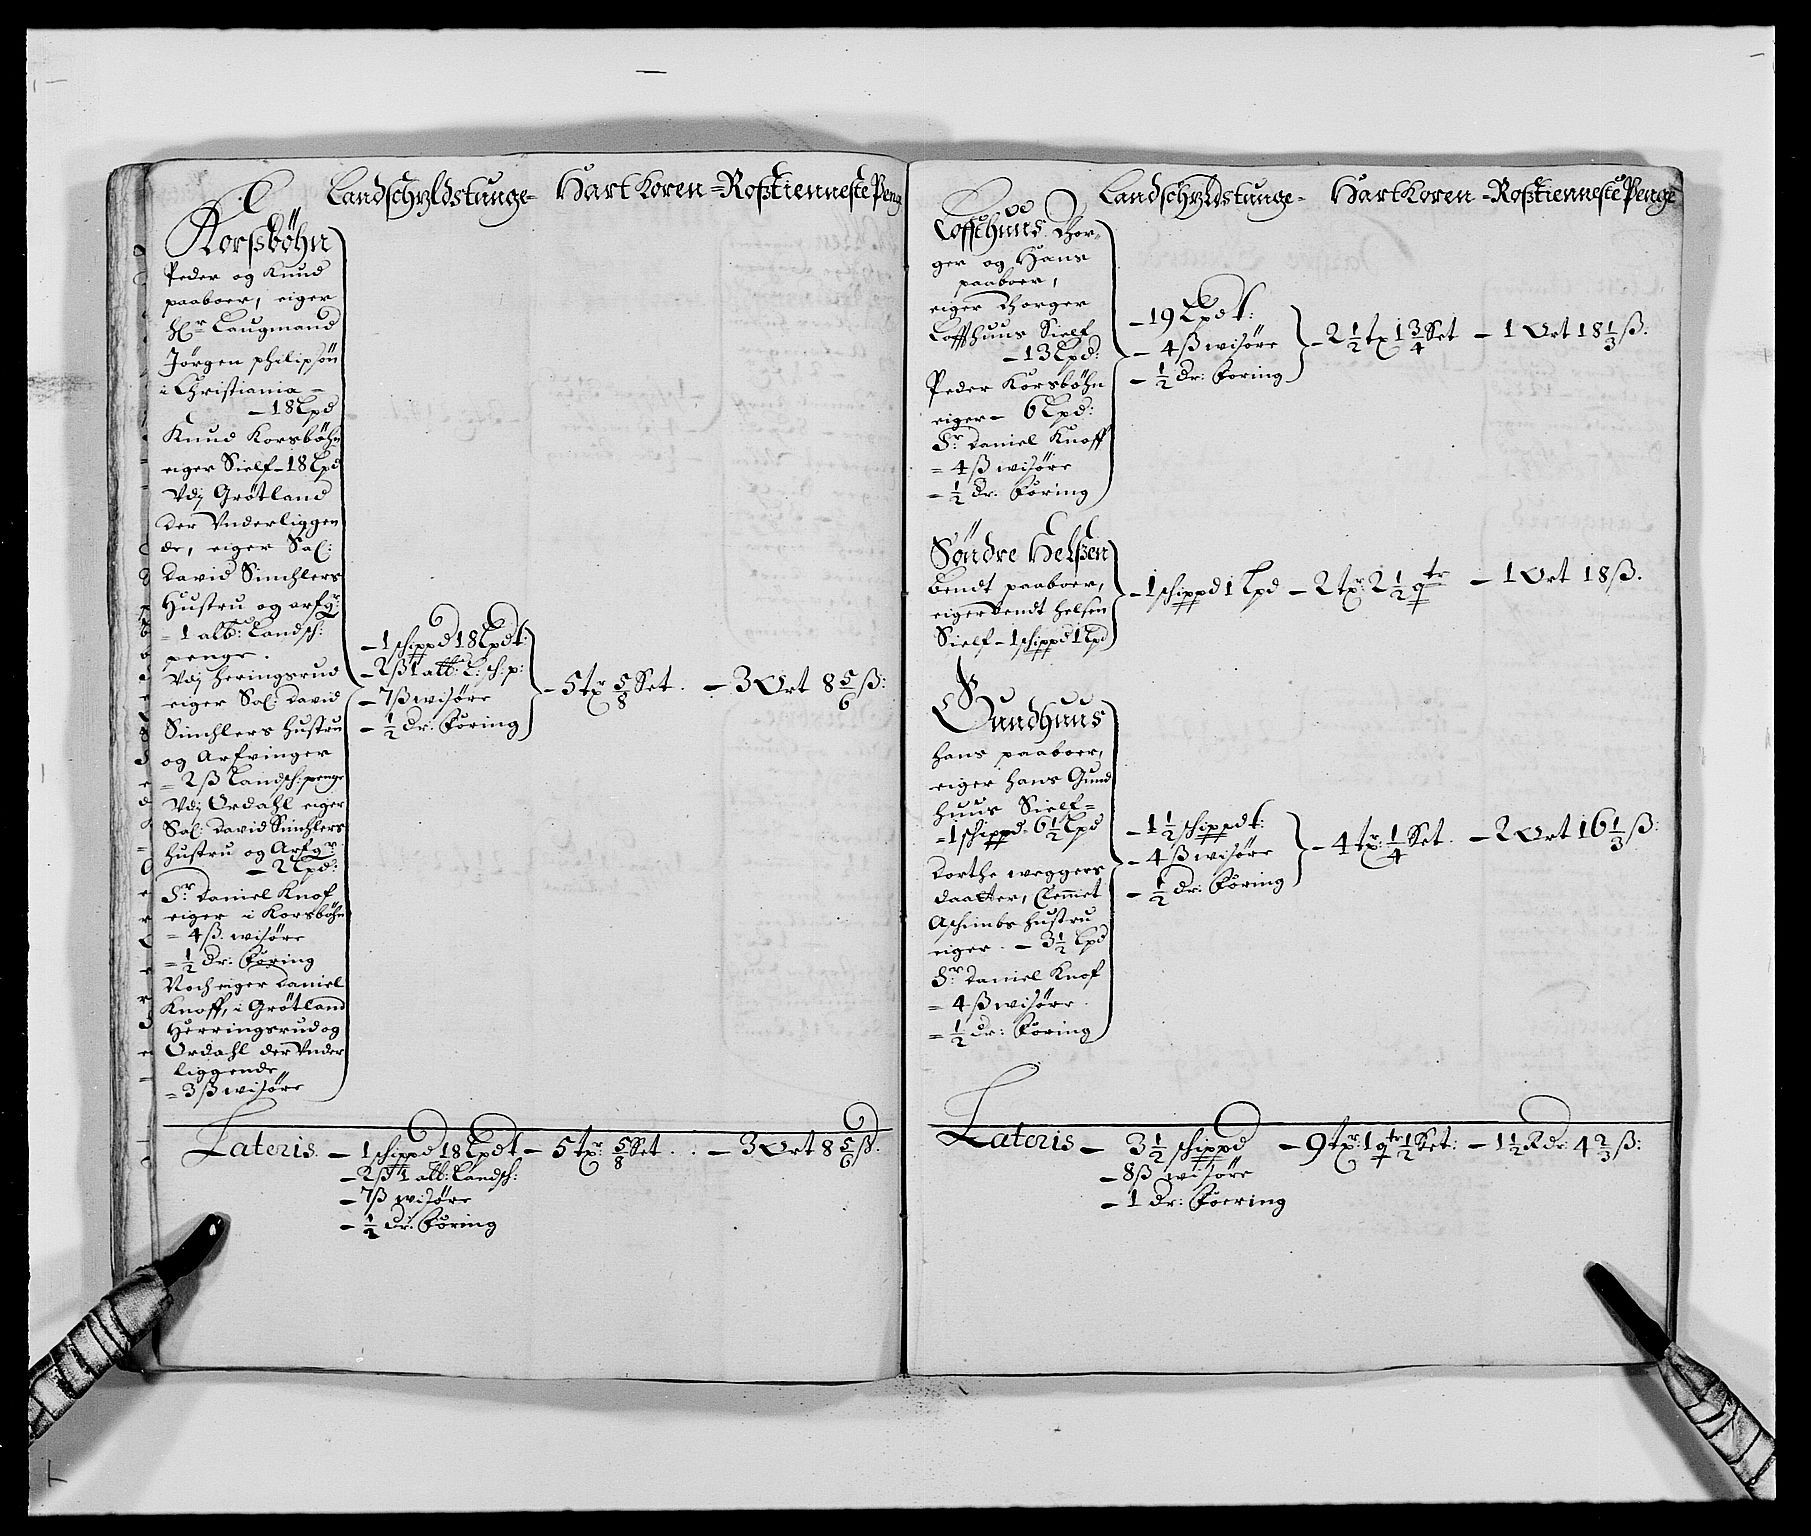 Landschyldstunge- Hart Koren =Roßtienneste Peng
Korsbøhn
Peder og Knud
paaboer, eiger
Hr Laugmand
Jørgen philipsøn
i Christiania -
- 18 Lpd
Knud Korsbøhn
eiger Sielf - 18 Lpd
Vdj Grøtland
der Vnderliggen
de, eiger Sal:
David Sinchlers
Hustru og arfgr:
= 1 alb: Landsch:
penge.
Vdj Heringsrud
eiger Sal: David
Sinchlers Hustru
og Arfvinger
= 2 ß Landsch: penge
Vdj Ordahl eiger
Sal: David Sinchlers
hustru og Arfgr.
- 2 Lpd:
Sr Daniel Knof
eiger i Korsbøhn
= 4 ß. wisøre
= ½ dr: Foring
Noch eiger Daniel
Knoff, i Grøtland
Herringsrud og
Ordahl der Vnder
liggende
= 3 ß wisøre
- 1 schippd 18 Lpdt:
- 2 ß 1 alb: L: sch: p:
- 7 ß wisøre
- ½ dr: Foring
- 5 tr 5/8 Set. - 3 Ort 8 5/6 ß:
Lateris. - 1 schippd 18 Lpdt - 5 tr: 5/8 Set. - 3 Ort 8 5/6 ß.
- 2 ß 1 alb: Landsch:
- 7 ß wisøre
- ½ dr: Foring
Landschyldstunge- Hart Koren =Roßtienneste Penge
Loffthuus Thor-
ger og Hans
paaboer,
eiger Thorger
Loffthuus Sielf
- 13 Lpd:
Peder Korsbøhn
eiger - 6 Lpd:
Sr Daniel Knoff
= 4 ß wisøre
- ½ dr: Foring
- 19 Lpdt:
- 4 ß wisøre
- ½ dr: Foring
- 2 ½ tr 1 3/4 Set - 1 Ort 18 1/3 ß:
Søndre Helßen
Bendt paaboer,
eiger Bendt Helsen
Sielf - 1 schippd 1 Lpd
- 1 schippd 1 Lpd - 2 tr: 2 ½ qtr - 1 Ort 18 ß.
Gundhuus
Hans paaboer,
eiger Hans Gund
huus Sielf=
= 1 schippd 6 ½ Lpd
Dorthe weggers
daatter, Clemmet
Aschimbs hustru
eiger. - 3 ½ Lpd
Sr Daniel Knof
= 4 ß wisøre.
= ½ dr: Foring
- 1 ½ schippdt:
- 4 ß wisøre
- ½ dr: Foring
- 4 tr: 1/4 Set. - 2 Ort 16 1/3 ß:
Lateris - 3 ½ schippd - 9 tr: 1 qtr ½ Set: - 1 ½ Rdr: 4 2/3 ß:
- 8 ß wisøre
- 1 dr: Foering